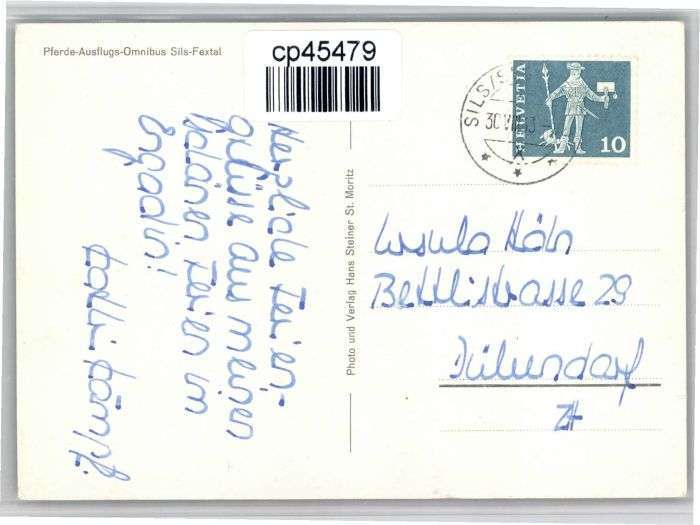 Pferde-Ausflugs-Omnibus Sils-Fextal
cp45479
HELVETIA
10
SILS/S
30.VII.
Herzliche Ferien-
grüsse aus meinen
schönen Ferien im
Engadin!
Photo und Verlag Hans Steiner St. Moritz
Ursula
Bettlistrasse 29
Dübendorf
ZH